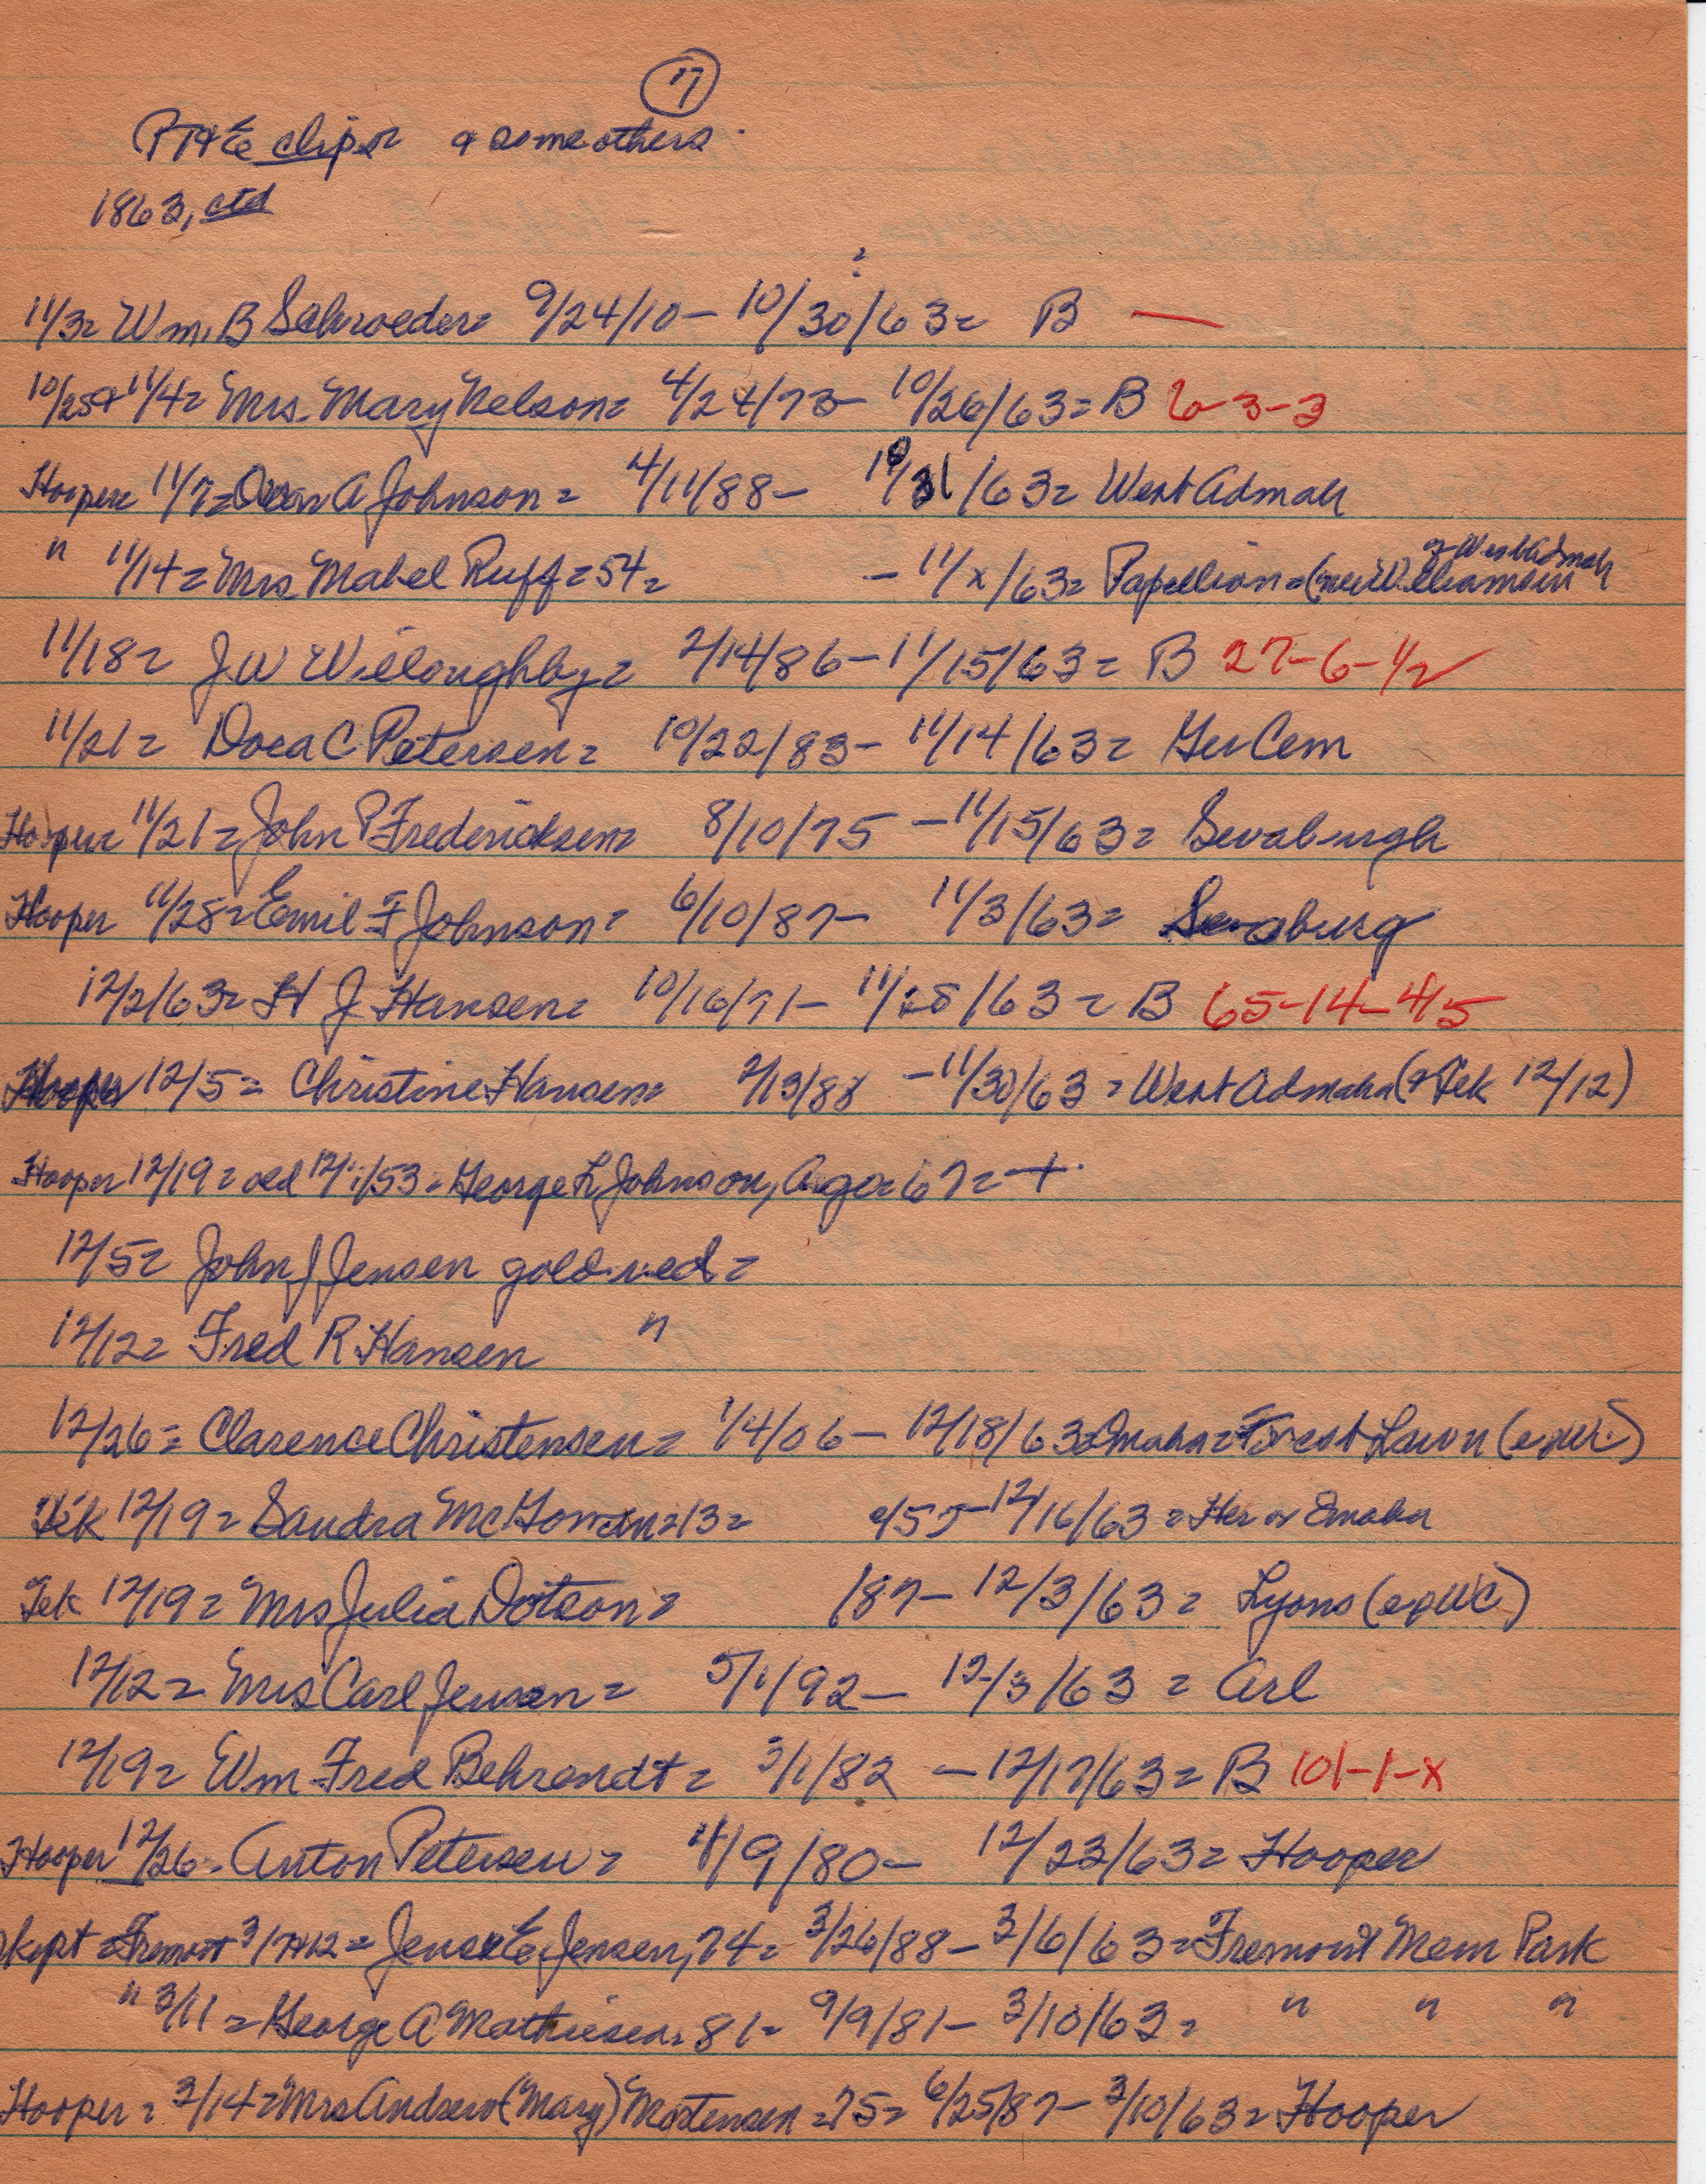 17
PT&E clips & some others.
1863, ctd
?
11/3= Wm. B Schroeder= 9/24/10- 10/30/63= B —
10/25& 11/4= Mrs. Mary Nelson= 4/24/73- 10/26/63= B 6-3-3
Hooper 11/7= A Johnson= 4/11/88- 10/31/63= West Admah
" 11/14= Mrs Mabel Ruff=54= - 11/x/63= Papillion= (nee Williamson of West Admah
11/18= J W Willoughby= 2/14/86-11/15/63= B 27-6-1/2
11/21= Dora C Petersen= 10/22/83- 11/14/63= Ger Cem
Hooper 11/21= John P Fredericksen= 8/10/75 -11/15/63= Swaburgh
Hooper 11/28= Emil F Johnson= 6/10/87- 11/3/63= Swaburg
12/2/63= H J Hansen= 10/16/71- 11/28/63= B 65-14-4/5
Hooper 12/5= Christine Hansen= 2/13/88 -11/30/63= West Admaha (& Tek 12/12)
Hooper 12/19= old 12/ /53= George L Johnson, Age=67= +.
12/5= John J Jensen gold wed=
12/12= Fred R Hansen "
12/26= Clarence Christensen= 1/4/06- 12/18/63=Omaha=Forest Lawn
Tek 12/19= Sandra McGowan=13= -12/16/63= Her or Omaha
Tek 12/19= Mrs Julia Dotson= /87- 12/3/63= Lyons
12/12= Mrs Carl Jensen= 5/1/92- 12/3/63= Arl
12/19= Wm Fred Behrendt= 3/1/82 -12/17/63= B 101-1-x
Hooper 12/26= Anton Petersen= /9/80- 12/23/63= Hooper
Skipt =Fremont 3/7&12= Jens E Jensen, 74= 3/26/88- 3/6/63=Fremont Mem Park
" 3/11= George A Mathiesen= 81= 9/9/81- 3/10/63= " " "
Hooper= 3/14=Mrs Andrew (Mary) Mortensen=75= 6/25/87- 3/10/63= Hooper